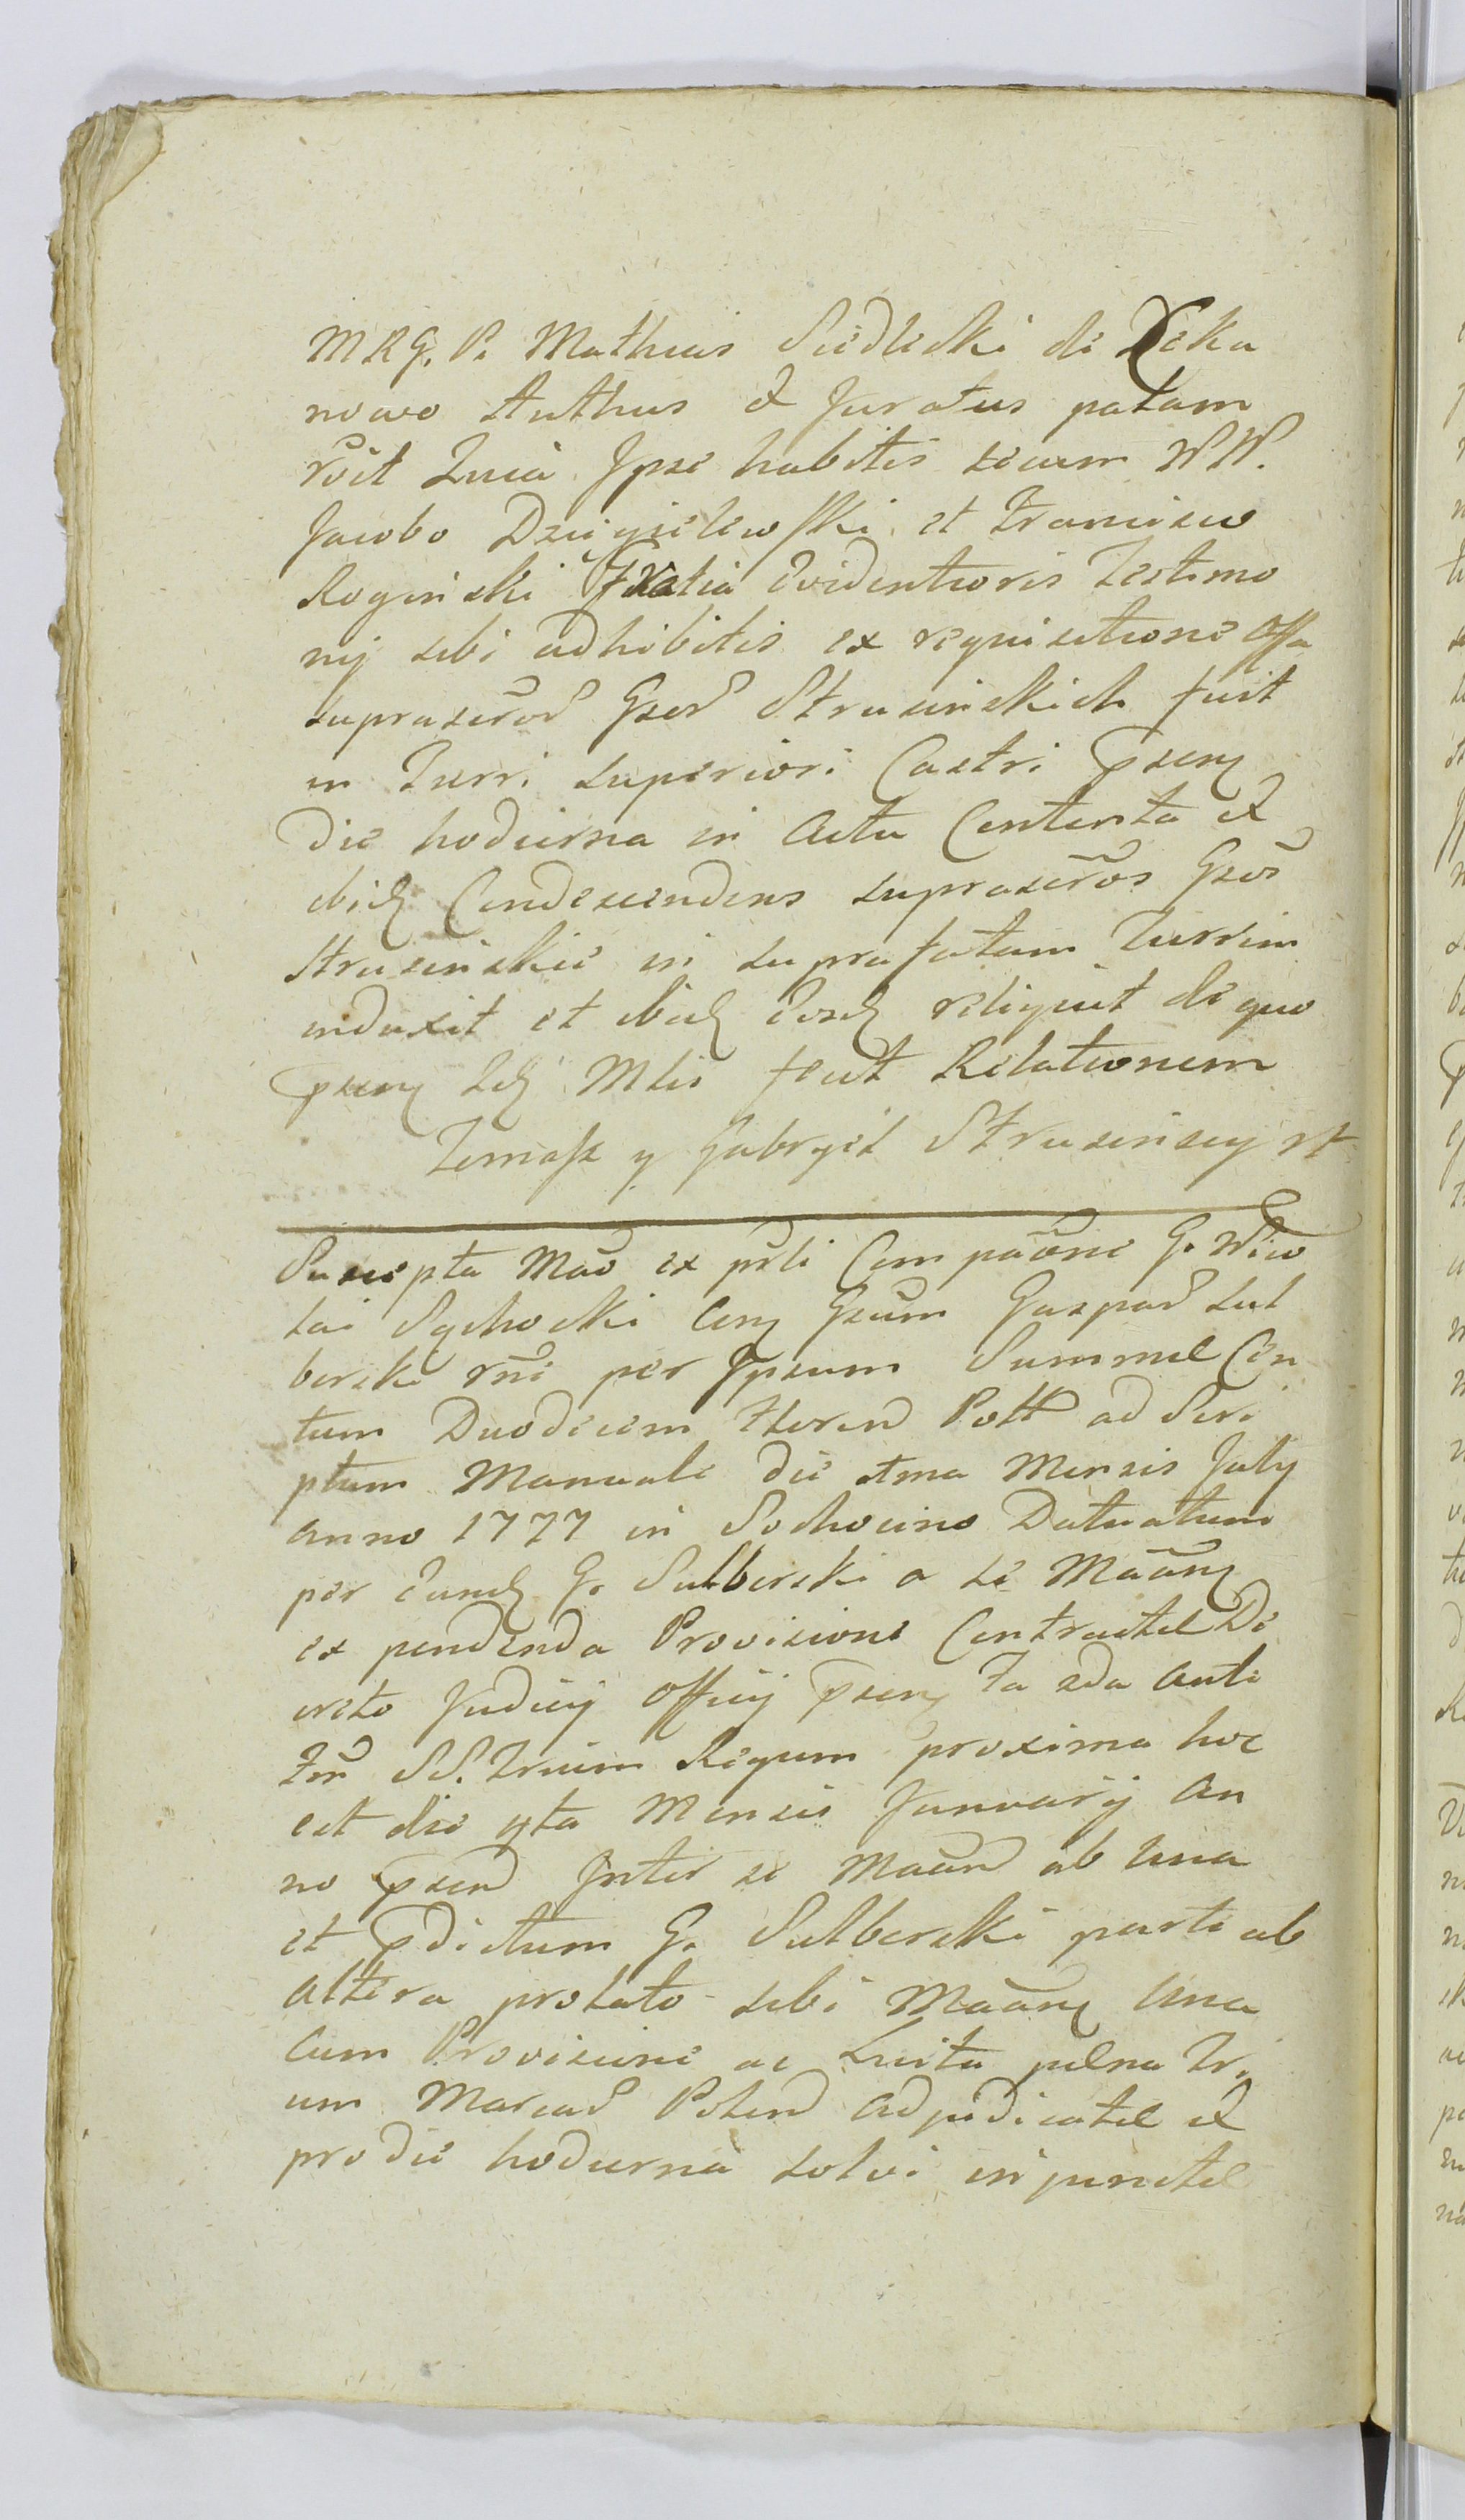 MRG. P. Mathias Siedlecki de Deka
nowo Authus et Juratus palam
rōit Quia Ipse habitis secum NN.
Jacobo Dzięgielewſki et Francisco
Rogiński Gratia Evidentioris Testimo
nij sibi adhibitis ex requisitione Offa
suprascrōr Gsor Strusinskich fuit
in Turri superiori Castri psenӡ
Die hodierna in Actu Contenta et
ibidӡ Condescendens suprascrōs Gsōs
Strusinskie in suprafatam Turrim
induxit et ibidӡ Eosdӡ reliquit de quo
psenӡ Idӡ Mlis fecit Relationem
Tomaſz y Gabryel Strusinscy
Suscepta Mao ex prli Com pāōne G. Nico
lai Sochocki Conӡ Gsūm Gaspar Sul
berski rnē per Ipsum Summae Cen
tum Duodecim Floren Poll ad Scri
ptum Manuale die 1ma Mensis July
Anno 1777 in Sochocino Datuatum
per Eundӡ G. Sulberski a se Māānӡ
ex pendenda Provisione Contractae De
creto Judicij Officij psenӡ Fa 2da Ante
Fm SS. Trium Regum proxima hoc
est die 4ta Mensis Januarij An
no psen Inter se Māān ab Una
et pdictum G. Sulberski parte ab
Altera prolato sibi Māānӡ Una
Cum Provisione ac Luita palna Tri
um Marcar Polen Adjudicatae et
pro die hodierna solvi injunctae